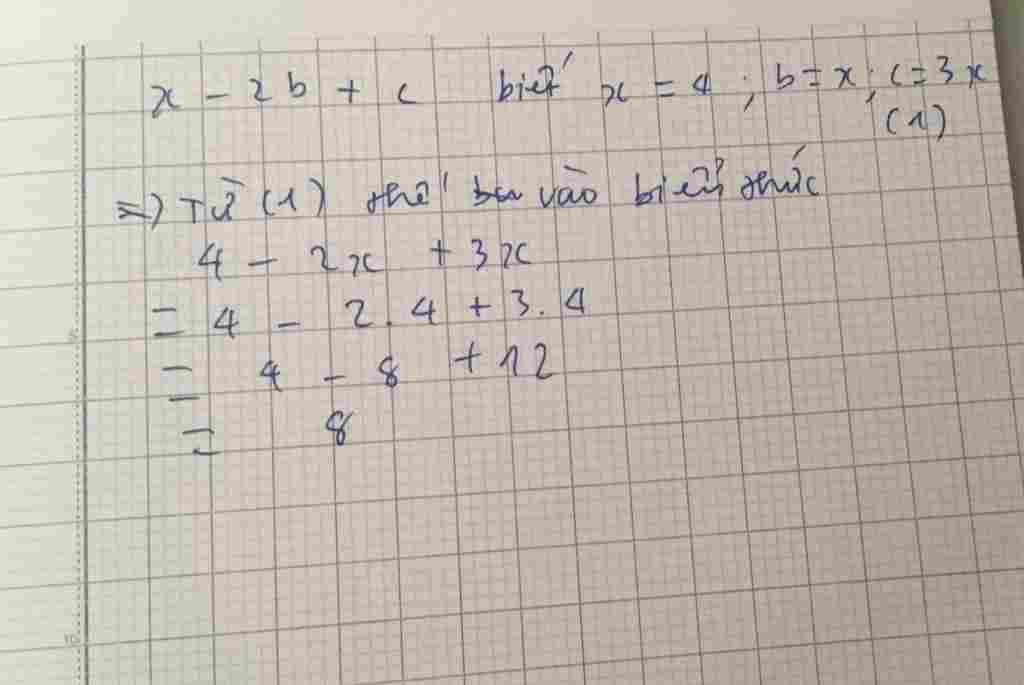 x - 2b + c biết x = 4 ; b = x ; c = 3x
(1)
=> Từ (1) thế vào biểu thức
4 - 2x + 3x
= 4 - 2.4 + 3.4
= 4 - 8 + 12
= 8